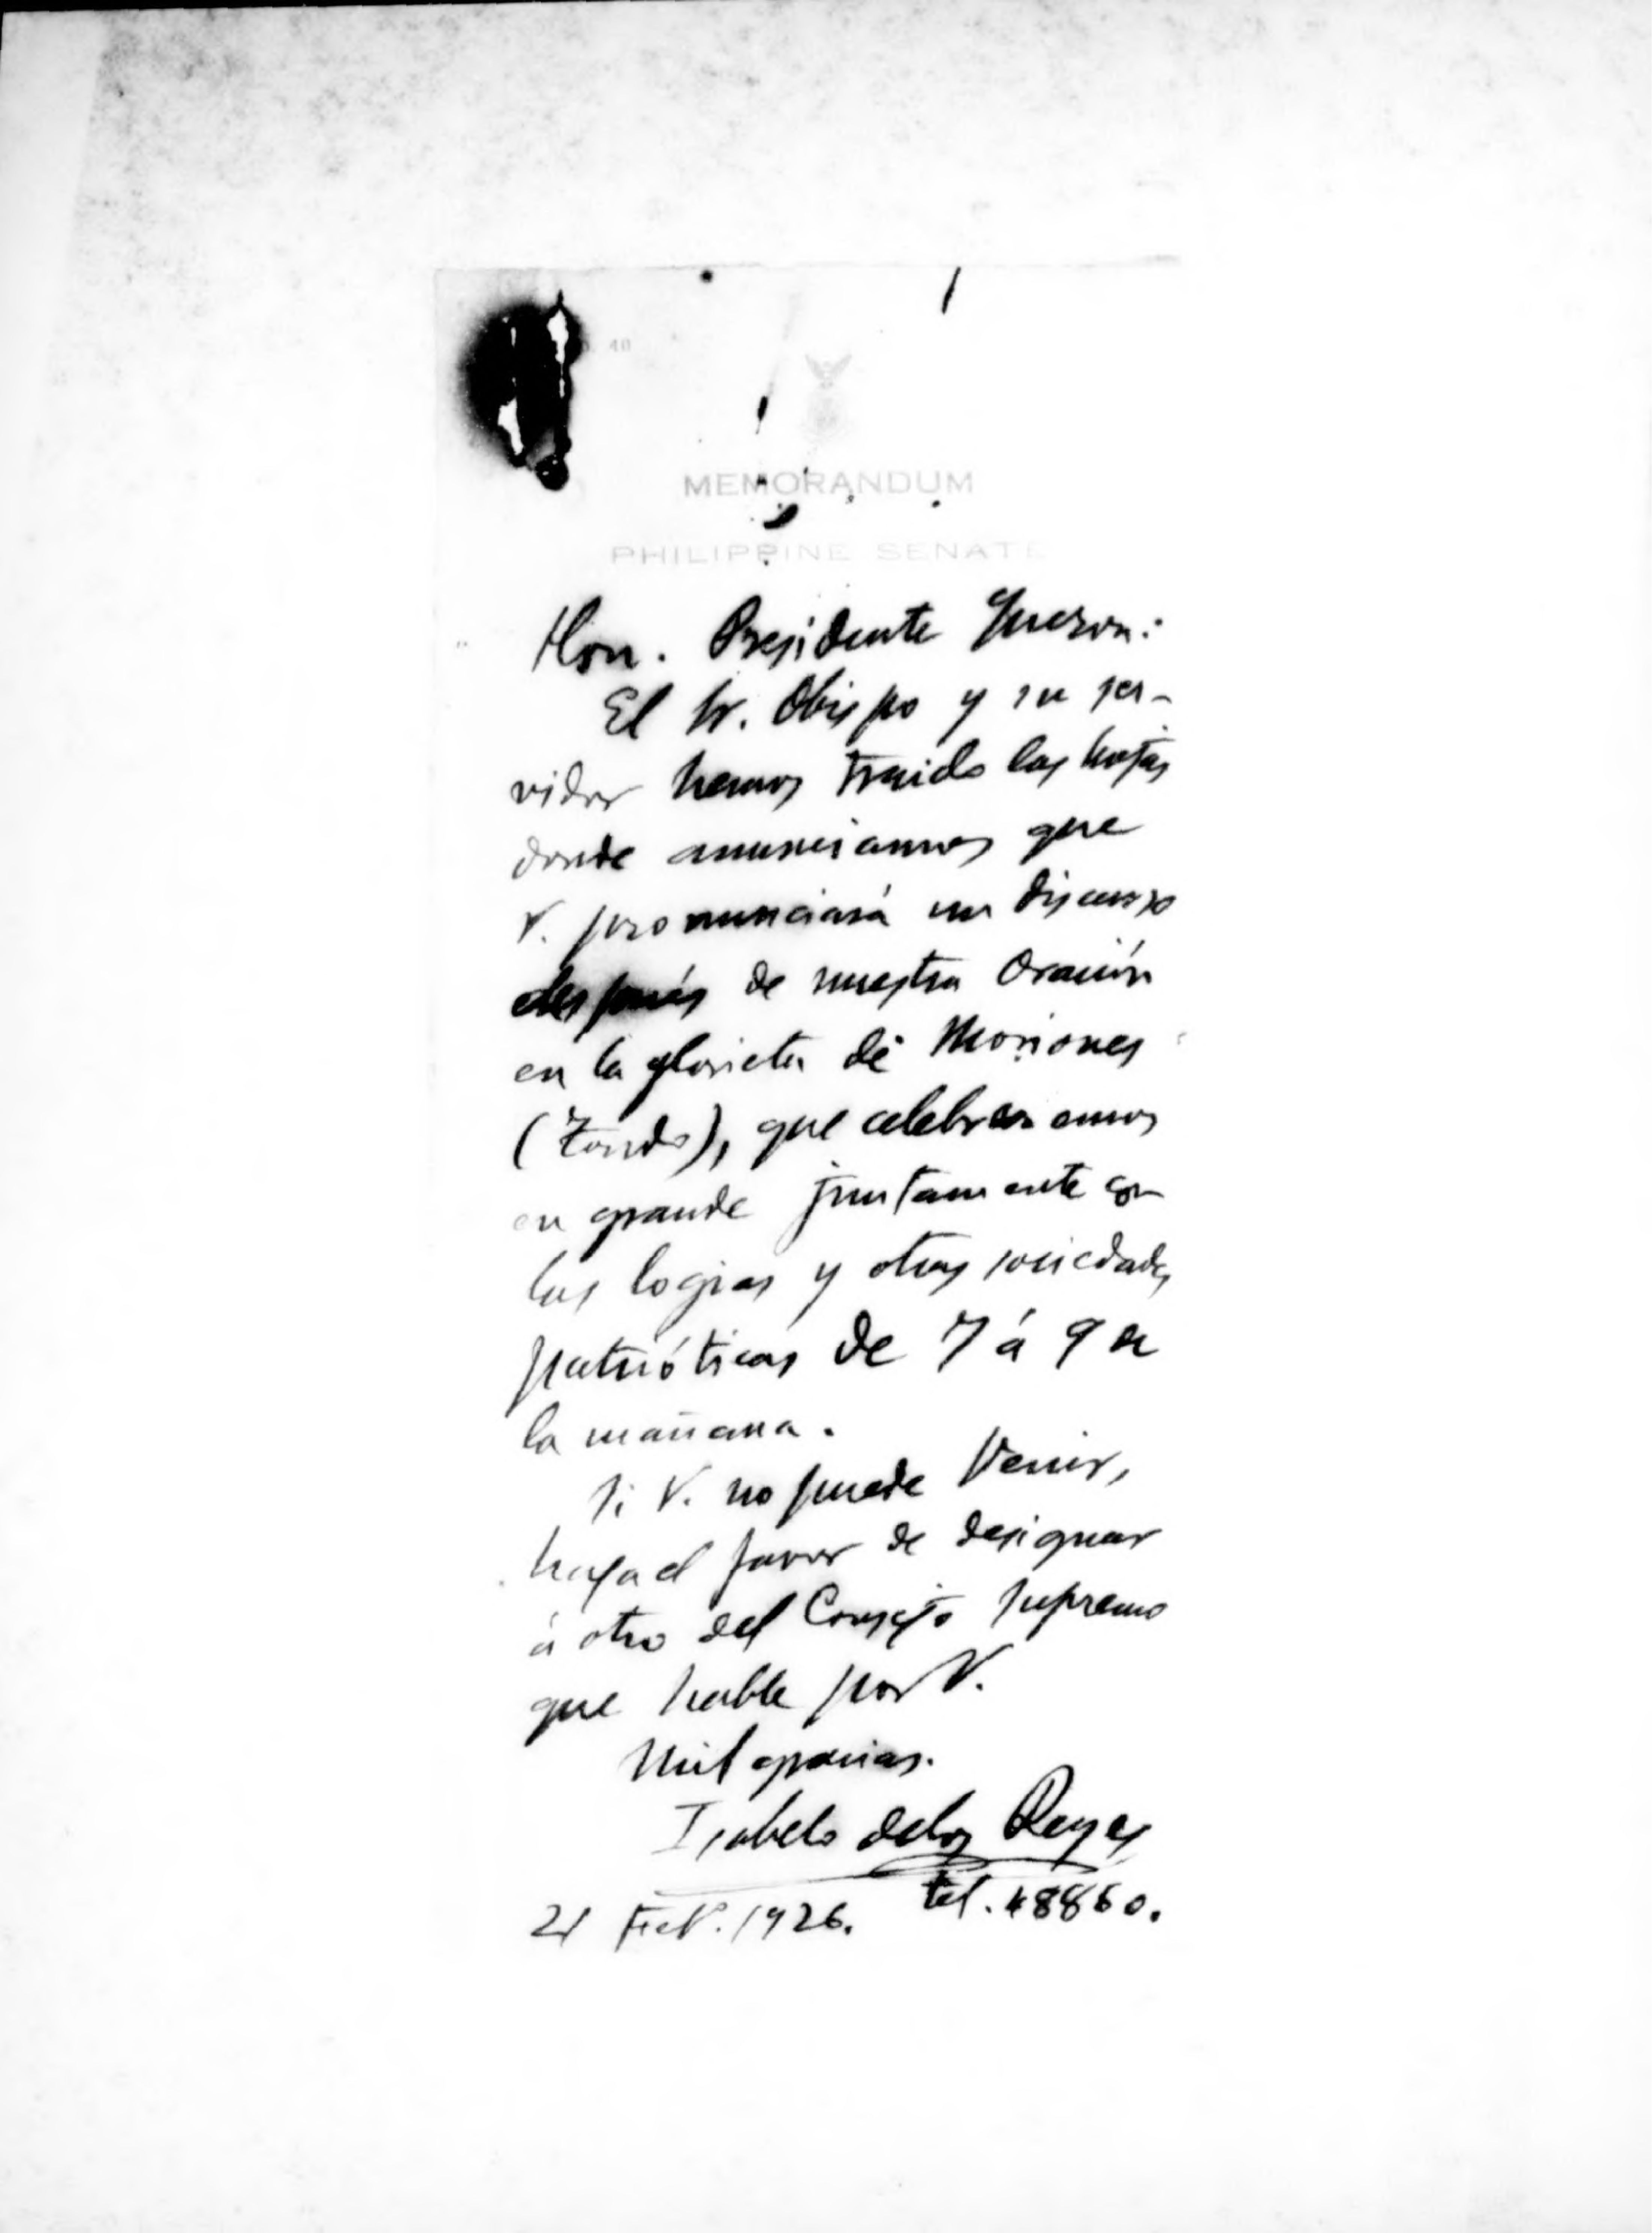 40
MEMORANDUM
PHILIPPINE SENATE
Hon. Presidente Quezon:
El Sr. Obispo y su ser-
vidor hemos traido las hojas
donde anunciamos que
V. pronunciará un discurso
después de nuestra Oración
en la glorieta de Moriones
(Tondo), que celebraremos
en grande juntamente con
las logias y otras sociedades
patrióticas de 7 á 9 de
la mañana.
Si V. no puede venir,
haga el favor de designar
á otro del Consejo Supremo
que hable por V.
Mil gracias.
Isabelo delos Reyes
tel. 48860.
21 Feb. 1926.